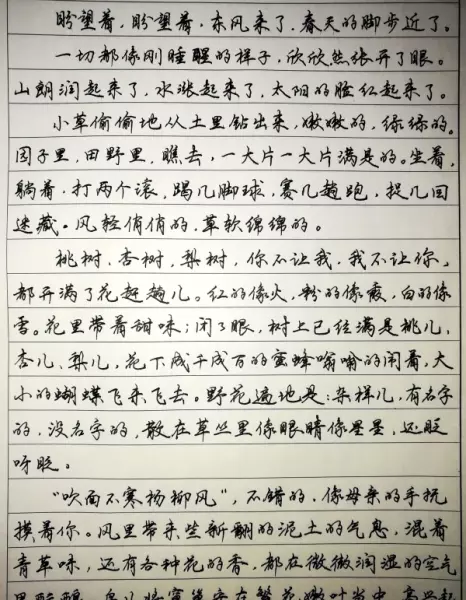 盼望着,盼望着,东风来了,春天的脚步近了。
一切都像刚睡醒的样子,欣欣然张开了眼。
山朗润起来了,水涨起来了,太阳的脸红起来了。
小草偷偷地从土里钻出来,嫩嫩的,绿绿的。
园子里,田野里,瞧去,一大片一大片满是的。坐着,
躺着,打两个滚,踢几脚球,赛几趟跑,捉几回
迷藏。风轻俏俏的,草软绵绵的。
桃树、杏树、梨树,你不让我,我不让你,
都开满了花赶趟儿。红的像火,粉的像霞,白的像
雪。花里带着甜味;闭了眼,树上已经满是桃儿、
杏儿、梨儿,花下成千成百的蜜蜂嗡嗡的闹着,大
小的蝴蝶飞来飞去。野花遍地是:杂样儿,有名字
的,没名字的,散在草丛里像眼睛像星星,还眨
呀眨。
“吹面不寒杨柳风”,不错的,像母亲的手抚
摸着你。风里带来些新翻的泥土的气息,混着
青草味,还有各种花的香,都在微微润湿的空气